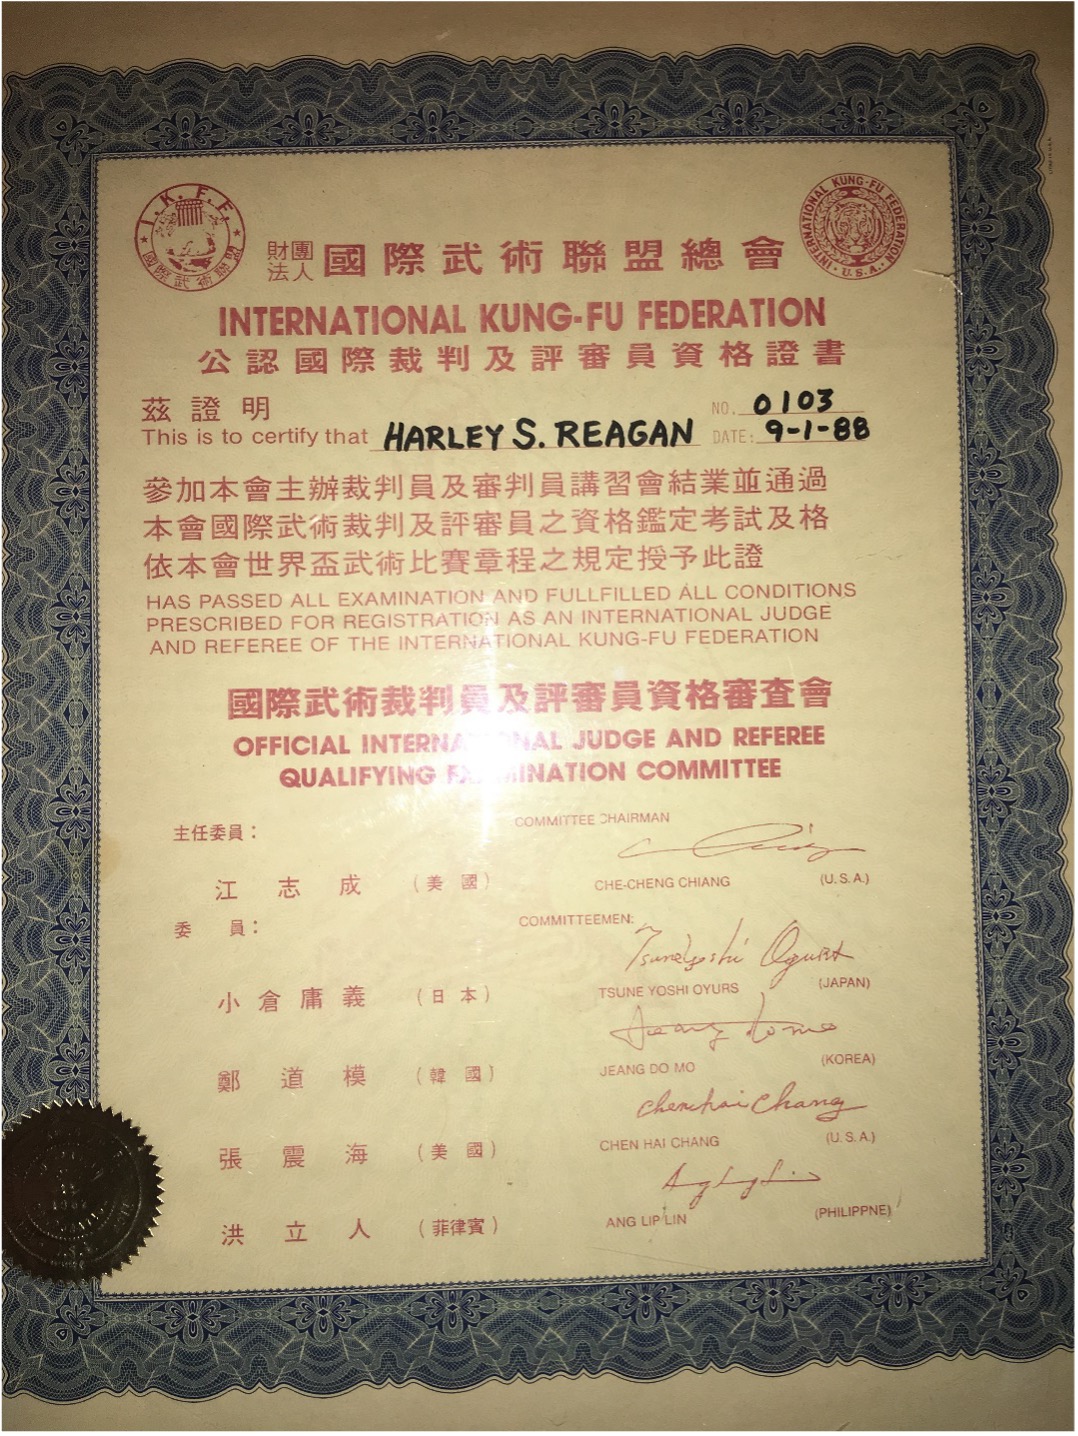 I.K.F.F.
國際武術聯盟
INTERNATIONAL KUNG-FU FEDERATION
U.S.A.
財團法人 國際武術聯盟總會
INTERNATIONAL KUNG-FU FEDERATION
公認國際裁判及評審員資格證書
茲證明
NO. 0103
This is to certify that HARLEY S. REAGAN DATE: 9-1-88
參加本會主辦裁判員及審判員講習會結業並通過
本會國際武術裁判及評審員之資格鑑定考試及格
依本會世界盃武術比賽章程之規定授予此證
HAS PASSED ALL EXAMINATION AND FULLFILLED ALL CONDITIONS
PRESCRIBED FOR REGISTRATION AS AN INTERNATIONAL JUDGE
AND REFEREE OF THE INTERNATIONAL KUNG-FU FEDERATION
國際武術裁判員及評審員資格審查會
OFFICIAL INTERNATIONAL JUDGE AND REFEREE
QUALIFYING EXAMINATION COMMITTEE
主任委員: COMMITTEE CHAIRMAN
江志成 (美國) CHE-CHENG CHIANG (U.S.A.)
委員: COMMITTEEMEN:
Tsuneyoshi Ogura
小倉庸義 (日本) TSUNE YOSHI OYURS (JAPAN)
Jeang Do mo
鄭道模 (韓國) JEANG DO MO (KOREA)
Chenhai Chang
張震海 (美國) CHEN HAI CHANG (U.S.A.)
Ang Lip Lin
洪立人 (菲律賓) ANG LIP LIN (PHILIPPNE)